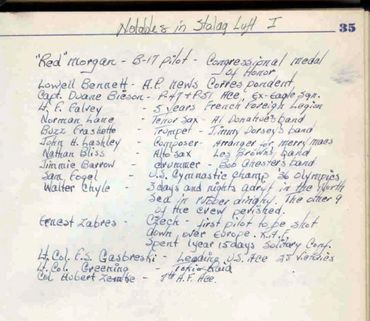 Notables in Stalag Luft I
35
"Red" Morgan - B-17 pilot - Congressional medal
of Honor
Lowell Bennett - A.P. News Correspondent
Capt Duane Beeson - P-47 + P-51 Ace, Ex-Eagle Sqn.
Lt. F. Falvey - 5 years French Foreign Legion
Norman Lane - Tenor Sax - Al Donahue's band
Buzz - Trumpet - Jimmy Dorsey's band
John H. Lashley - Composer - Arranger for merry mans
Nathan Bliss - Alto Sax - Les Brown's band
Jimmie Barrow - drummer - Bob Chester's band
Sam Fogel - U.S. Gymnastic Champ '36 Olympics
Walter Chyle - 3 days and nights adrift in the North
Sea in rubber dinghy. The other 9
of the crew perished.
Ernest Zabres - Czech - first pilot to be shot
down over Europe. R.A.F.
Spent 1 year 15 days Solitary Conf.
Lt. Col. F.S. Gasbreski - Leading U.S. Ace 28 Victories
Lt. Col. Greening - Tokio-Raid
Col Hubert Zemke - 8th A.F. Ace.